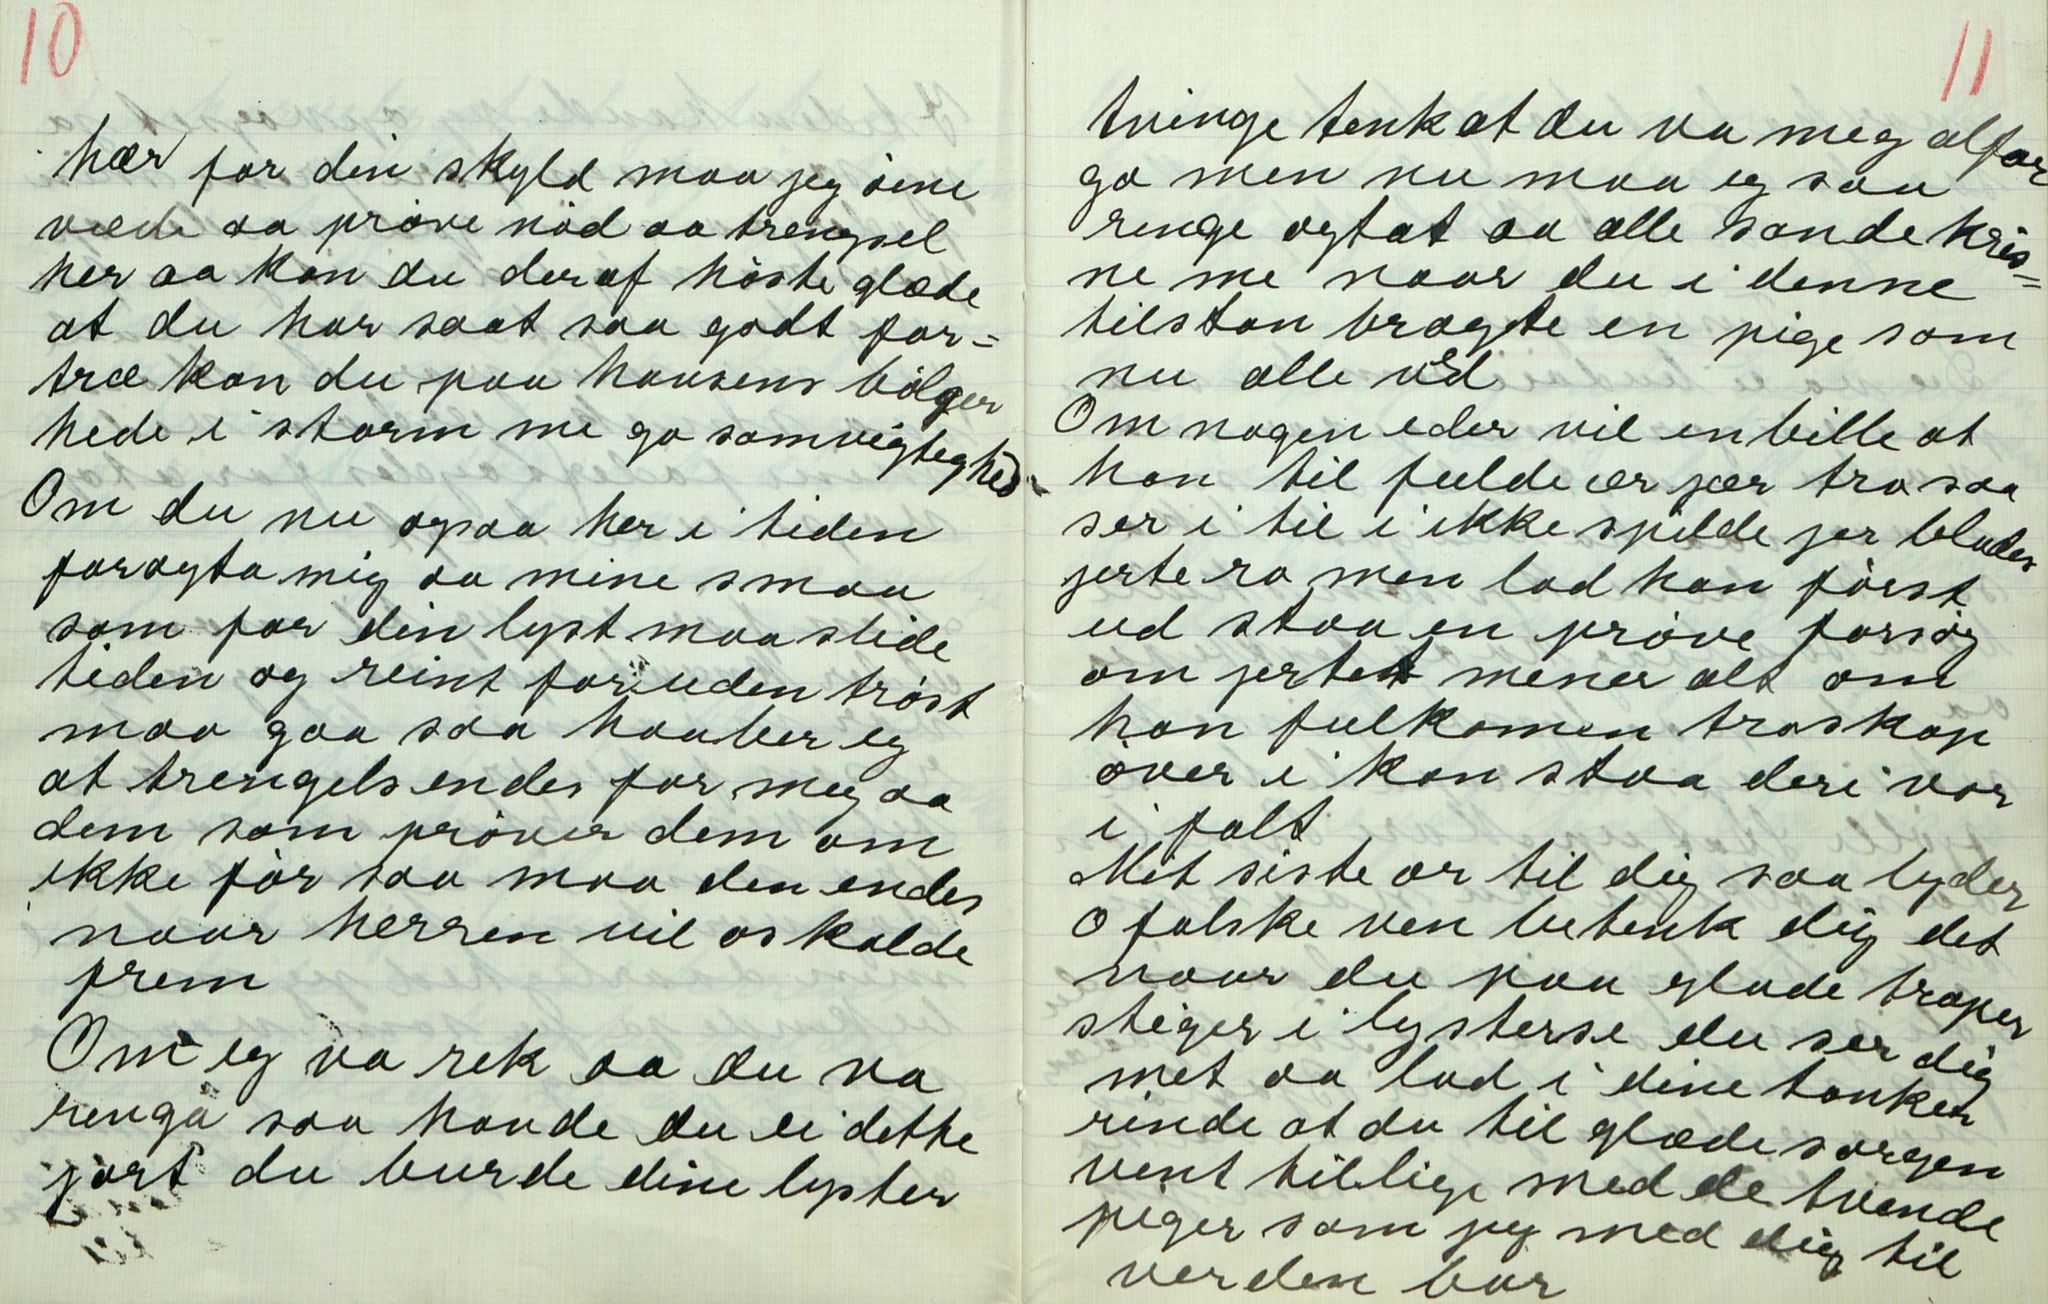 10
hær for din skyld maa jeg øine
væde aa prøve nød aa trengsel
her aa kan du deraf høste glæde
at du har saat saa godt for=
træ kan du paa havsens bølger
hede i storm me go samvigtighed
Om du nu ogsaa her i tiden
foragta mig aa mine smaa
som for din lyst maa slide
tiden og reint foruden trøst
maa gaa saa haaber eg
at trengels endes for meg aa
dem som prøver dem om
ikke før saa maa den endes
naar herren vil os kalde
frem
Om eg va rek aa du va
renga saa havde du ei dette
jort du burde dine lyster
11
tvinge tenk at du va meg alfor
go men nu maa eg saa
renge agtat aa alle sande kris=
ne me naar du i denne
tilstan bragte en pige som
nu alle ved
Om nogen eder vil enbille at
han til fulde ær jær tro saa
ser i til i ikke spilde jer blodes
jerte ro men lad han først
ud staa en prøve forsøg
om jertet mener alt om
han fulkomen troskap
øver i kan staa der i vor
i falt
Mit siste ær til dig saa lyder
O falske ven betenk dig det
naar du paa glade traper
stiger i lysterse du ser dig
met aa lad i dine tanker
rinde at du til glæde sorgen
vent tillige med de tvende
piger som jeg med dig til
verden bar